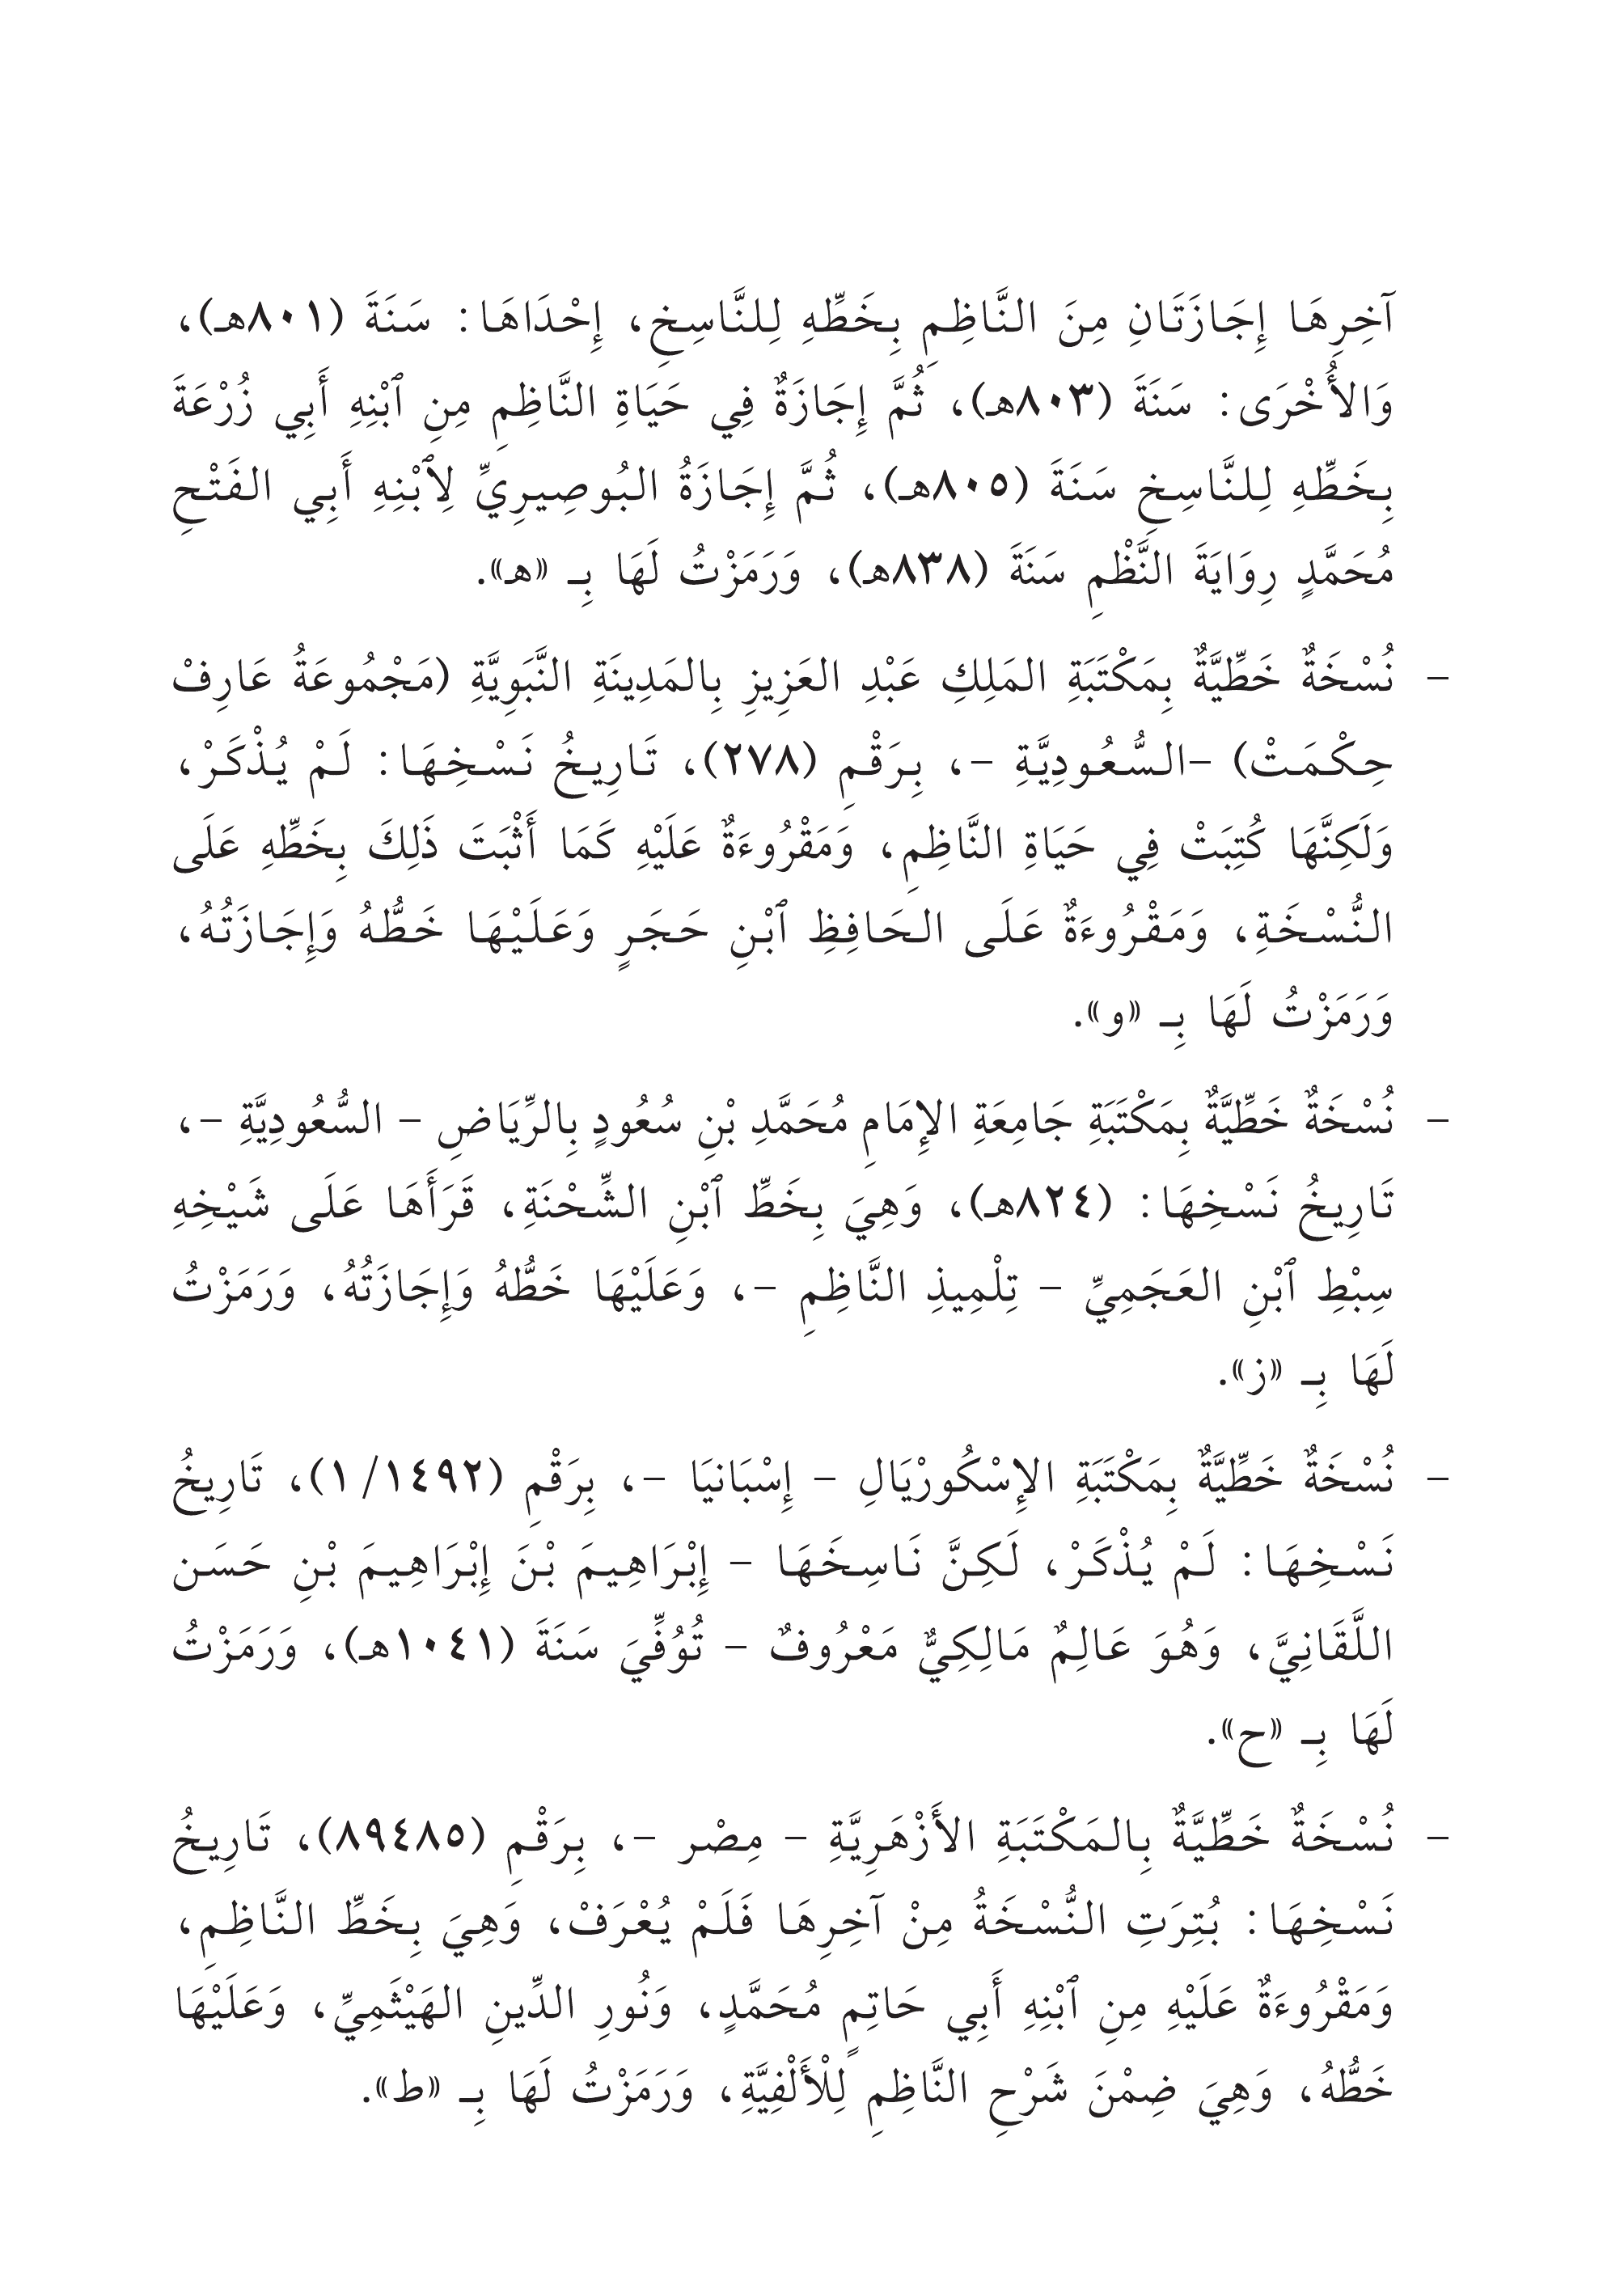 آخِرِهَا إِجَازَتَانِ مِنَ النَّاظِمِ بِخَطِّهِ لِلنَّاسِخِ، إِحْدَاهَا: سَنَةَ (٨٠١هـ)،
وَالأُخْرَى: سَنَةَ (٨٠٣هـ)، ثُمَّ إِجَازَةٌ فِي حَيَاةِ النَّاظِمِ مِنِ ٱبْنِهِ أَبِي زُرْعَةَ
بِخَطِّهِ لِلنَّاسِخِ سَنَةَ (٨٠٥هـ)، ثُمَّ إِجَازَةُ البُوصِيرِيِّ لِٱبْنِهِ أَبِي الفَتْحِ
مُحَمَّدٍ رِوَايَةَ النَّظْمِ سَنَةَ (٨٣٨هـ)، وَرَمَزْتُ لَهَا بِـ «هـ».
- نُسْخَةٌ خَطِّيَّةٌ بِمَكْتَبَةِ المَلِكِ عَبْدِ العَزِيزِ بِالمَدِينَةِ النَّبَوِيَّةِ (مَجْمُوعَةُ عَارِفْ
حِكْمَتْ) -السُّعُودِيَّةِ -، بِرَقْمِ (٢٧٨)، تَارِيخُ نَسْخِهَا: لَمْ يُذْكَرْ،
وَلَكِنَّهَا كُتِبَتْ فِي حَيَاةِ النَّاظِمِ، وَمَقْرُوءَةٌ عَلَيْهِ كَمَا أَثْبَتَ ذَلِكَ بِخَطِّهِ عَلَى
النُّسْخَةِ، وَمَقْرُوءَةٌ عَلَى الحَافِظِ ٱبْنِ حَجَرٍ وَعَلَيْهَا خَطُّهُ وَإِجَازَتُهُ،
وَرَمَزْتُ لَهَا بِـ «و».
- نُسْخَةٌ خَطِّيَّةٌ بِمَكْتَبَةِ جَامِعَةِ الإِمَامِ مُحَمَّدِ بْنِ سُعُودٍ بِالرِّيَاضِ - السُّعُودِيَّةِ -،
تَارِيخُ نَسْخِهَا: (٨٢٤هـ)، وَهِيَ بِخَطِّ ٱبْنِ الشِّحْنَةِ، قَرَأَهَا عَلَى شَيْخِهِ
سِبْطِ ٱبْنِ العَجَمِيِّ - تِلْمِيذِ النَّاظِمِ -، وَعَلَيْهَا خَطُّهُ وَإِجَازَتُهُ، وَرَمَزْتُ
لَهَا بِـ «ز».
- نُسْخَةٌ خَطِّيَّةٌ بِمَكْتَبَةِ الإِسْكُورْيَالِ - إِسْبَانيَا -، بِرَقْمِ (١/١٤٩٢)، تَارِيخُ
نَسْخِهَا: لَمْ يُذْكَرْ، لَكِنَّ نَاسِخَهَا - إِبْرَاهِيمَ بْنَ إِبْرَاهِيمَ بْنِ حَسَن
اللَّقَانِيَّ، وَهُوَ عَالِمٌ مَالِكِيٌّ مَعْرُوفٌ - تُوُفِّيَ سَنَةَ (١٠٤١هـ)، وَرَمَزْتُ
لَهَا بِـ «ح».
- نُسْخَةٌ خَطِّيَّةٌ بِالمَكْتَبَةِ الأَزْهَرِيَّةِ - مِصْر -، بِرَقْمِ (٨٩٤٨٥)، تَارِيخُ
نَسْخِهَا: بُتِرَتِ النُّسْخَةُ مِنْ آخِرِهَا فَلَمْ يُعْرَفْ، وَهِيَ بِخَطِّ النَّاظِمِ،
وَمَقْرُوءَةٌ عَلَيْهِ مِنِ ٱبْنِهِ أَبِي حَاتِمٍ مُحَمَّدٍ، وَنُورِ الدِّينِ الهَيْثَمِيِّ، وَعَلَيْهَا
خَطُّهُ، وَهِيَ ضِمْنَ شَرْحِ النَّاظِمِ لِلْأَلْفِيَّةِ، وَرَمَزْتُ لَهَا بِـ «ط».